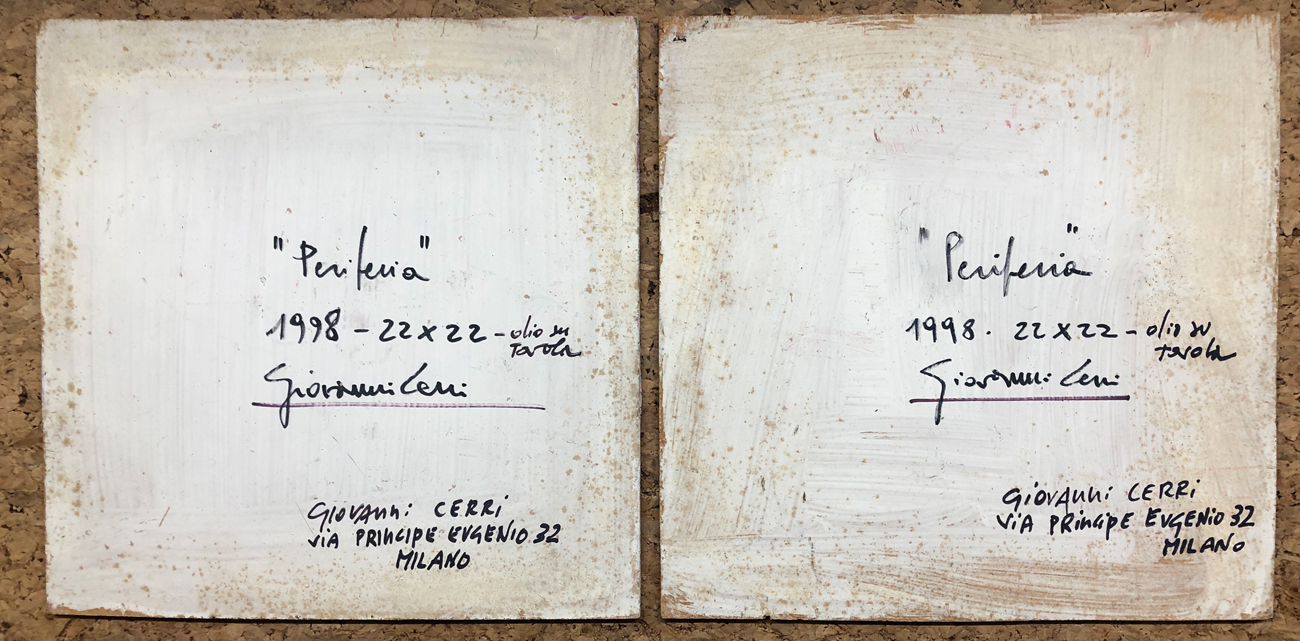 "Periferia"
1998 - 22 x 22 - olio su
tavola
Giovanni Cerri
GIOVANNI CERRI
VIA PRINCIPE EUGENIO 32
MILANO
"Periferia"
1998. 22 x 22 - olio su
tavola
Giovanni Cerri
GIOVANNI CERRI
VIA PRINCIPE EUGENIO 32
MILANO